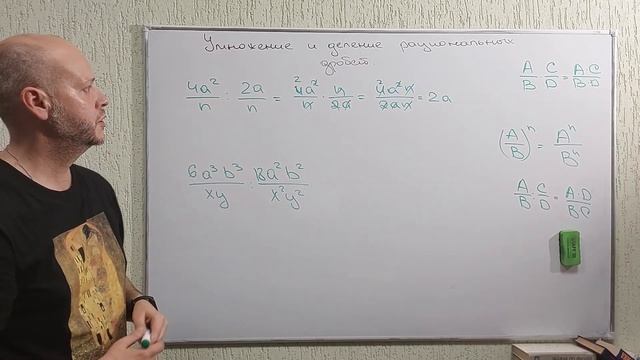 Умножение и деление рациональных
дробей
4a²/n : 2a/n = 4a²/n · n/2a = 4a²n/2an = 2a
6a³b³/xy : 18a²b²/x²y²
A/B · C/D = A·C/B·D
(A/B)ⁿ = Aⁿ/Bⁿ
A/B : C/D = A·D/BC